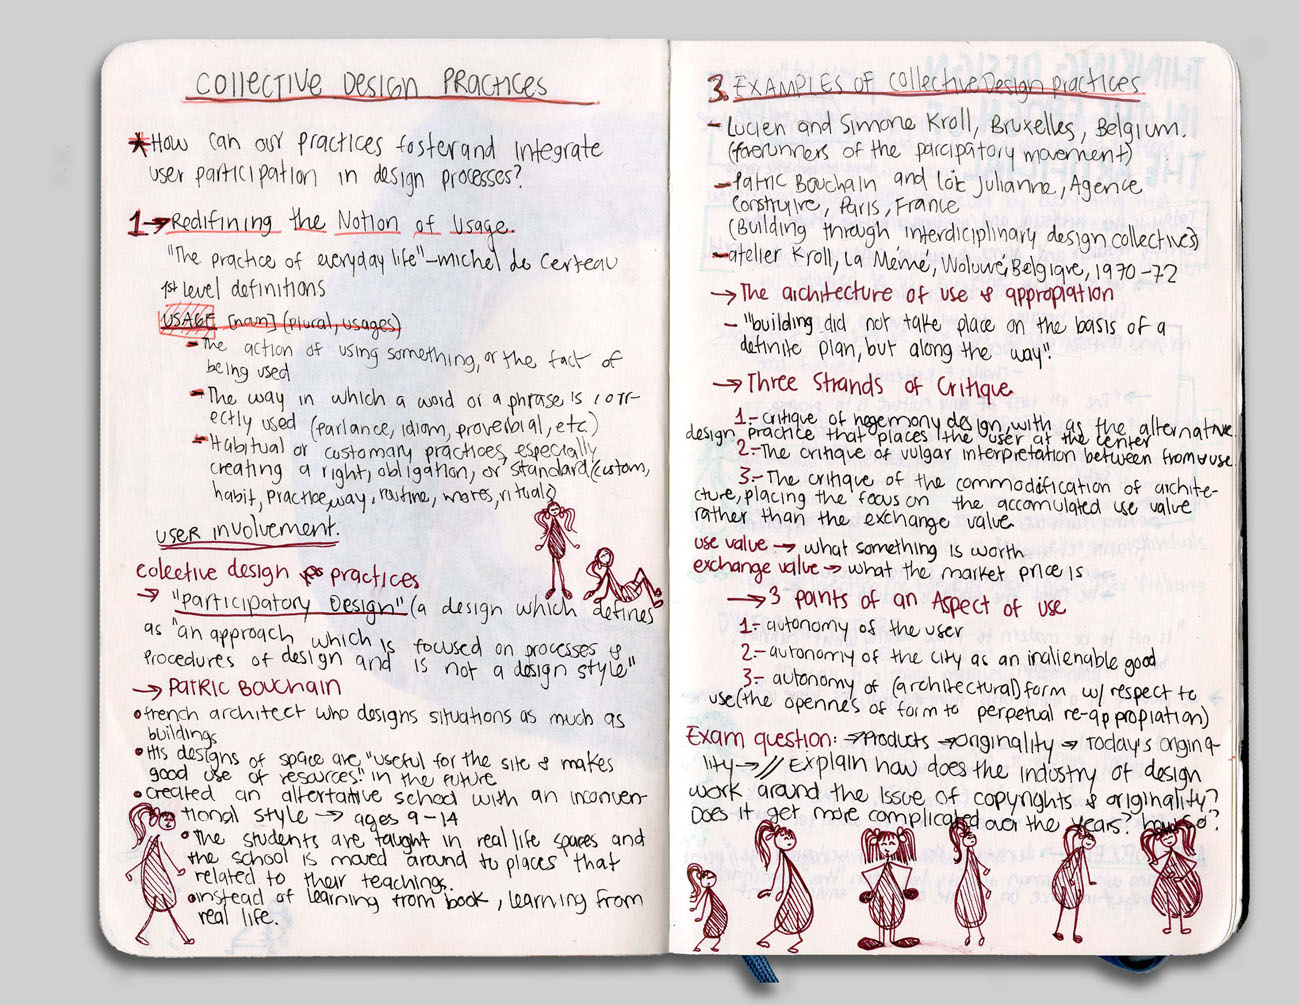 COLLECTIVE DESIGN PRACTICES
*How can our practices foster and integrate
user participation in design processes?
1→Redifining the Notion of Usage.
"The practice of everyday life"-michel de Certeau
1st level definitions
USAGE [noun] (plural, usages)
- The action of using something, or the fact of
being used
- The way in which a word or a phrase is corr-
ectly used (parlance, idiom, proverbial, etc.)
- Habitual or customary practices, especially
creating a right, obligation, or standard (custom,
habit, practice, way, routine, mores, ritual)
user involvement.
colective design practices
→ "Participatory Design" (a design which defines
as "an approach which is focused on processes &
procedures of design and is not a design style"
→ PATRIC BOUCHAIN
• french architect who designs situations as much as
buildings
• His designs of space are "useful for the site & makes
good use of resources" in the future
• created an altertative school with an inconven-
tional style → ages 9-14
• The students are taught in real life spaces and
the school is moved around to places that
related to their teachings.
• instead of learning from book, learning from
real life.
3. EXAMPLES OF Collective Design Practices
- Lucien and Simone Kroll, Bruxelles, Belgium.
(forerunners of the parcipatory movement)
- Patric Bouchain and Loïc Julianne, Agence
Construire, Paris, France
(Building through interdiciplinary design collectives)
- atelier Kroll, La Memé, Woluwé, Belgique, 1970-72
→ The architecture of use & appropiation
- "building did not take place on the basis of a
definite plan, but along the way".
→ Three Strands of Critique
1.- critique of hegemony design, with as the alternative
design practice that places the user at the center
2.- The critique of vulgar interpretation between from & use
3.- The critique of the commodification of archite-
cture, placing the focus on the accomulated use value
rather than the exchange value
use value → what something is worth
exchange value → what the market price is
→ 3 points of an Aspect of use
1.- autonomy of the user
2.- autonomy of the city as an inalienable good
3.- autonomy of (architectural) form w/ respect to
use (the opennes of form to perpetual re-appropiation)
Exam question: → Products → originality → Today's origina-
lity → // Explain how does the industry of design
work around the issue of copyrights & originality?
Does it get more complicated over the years? how so?